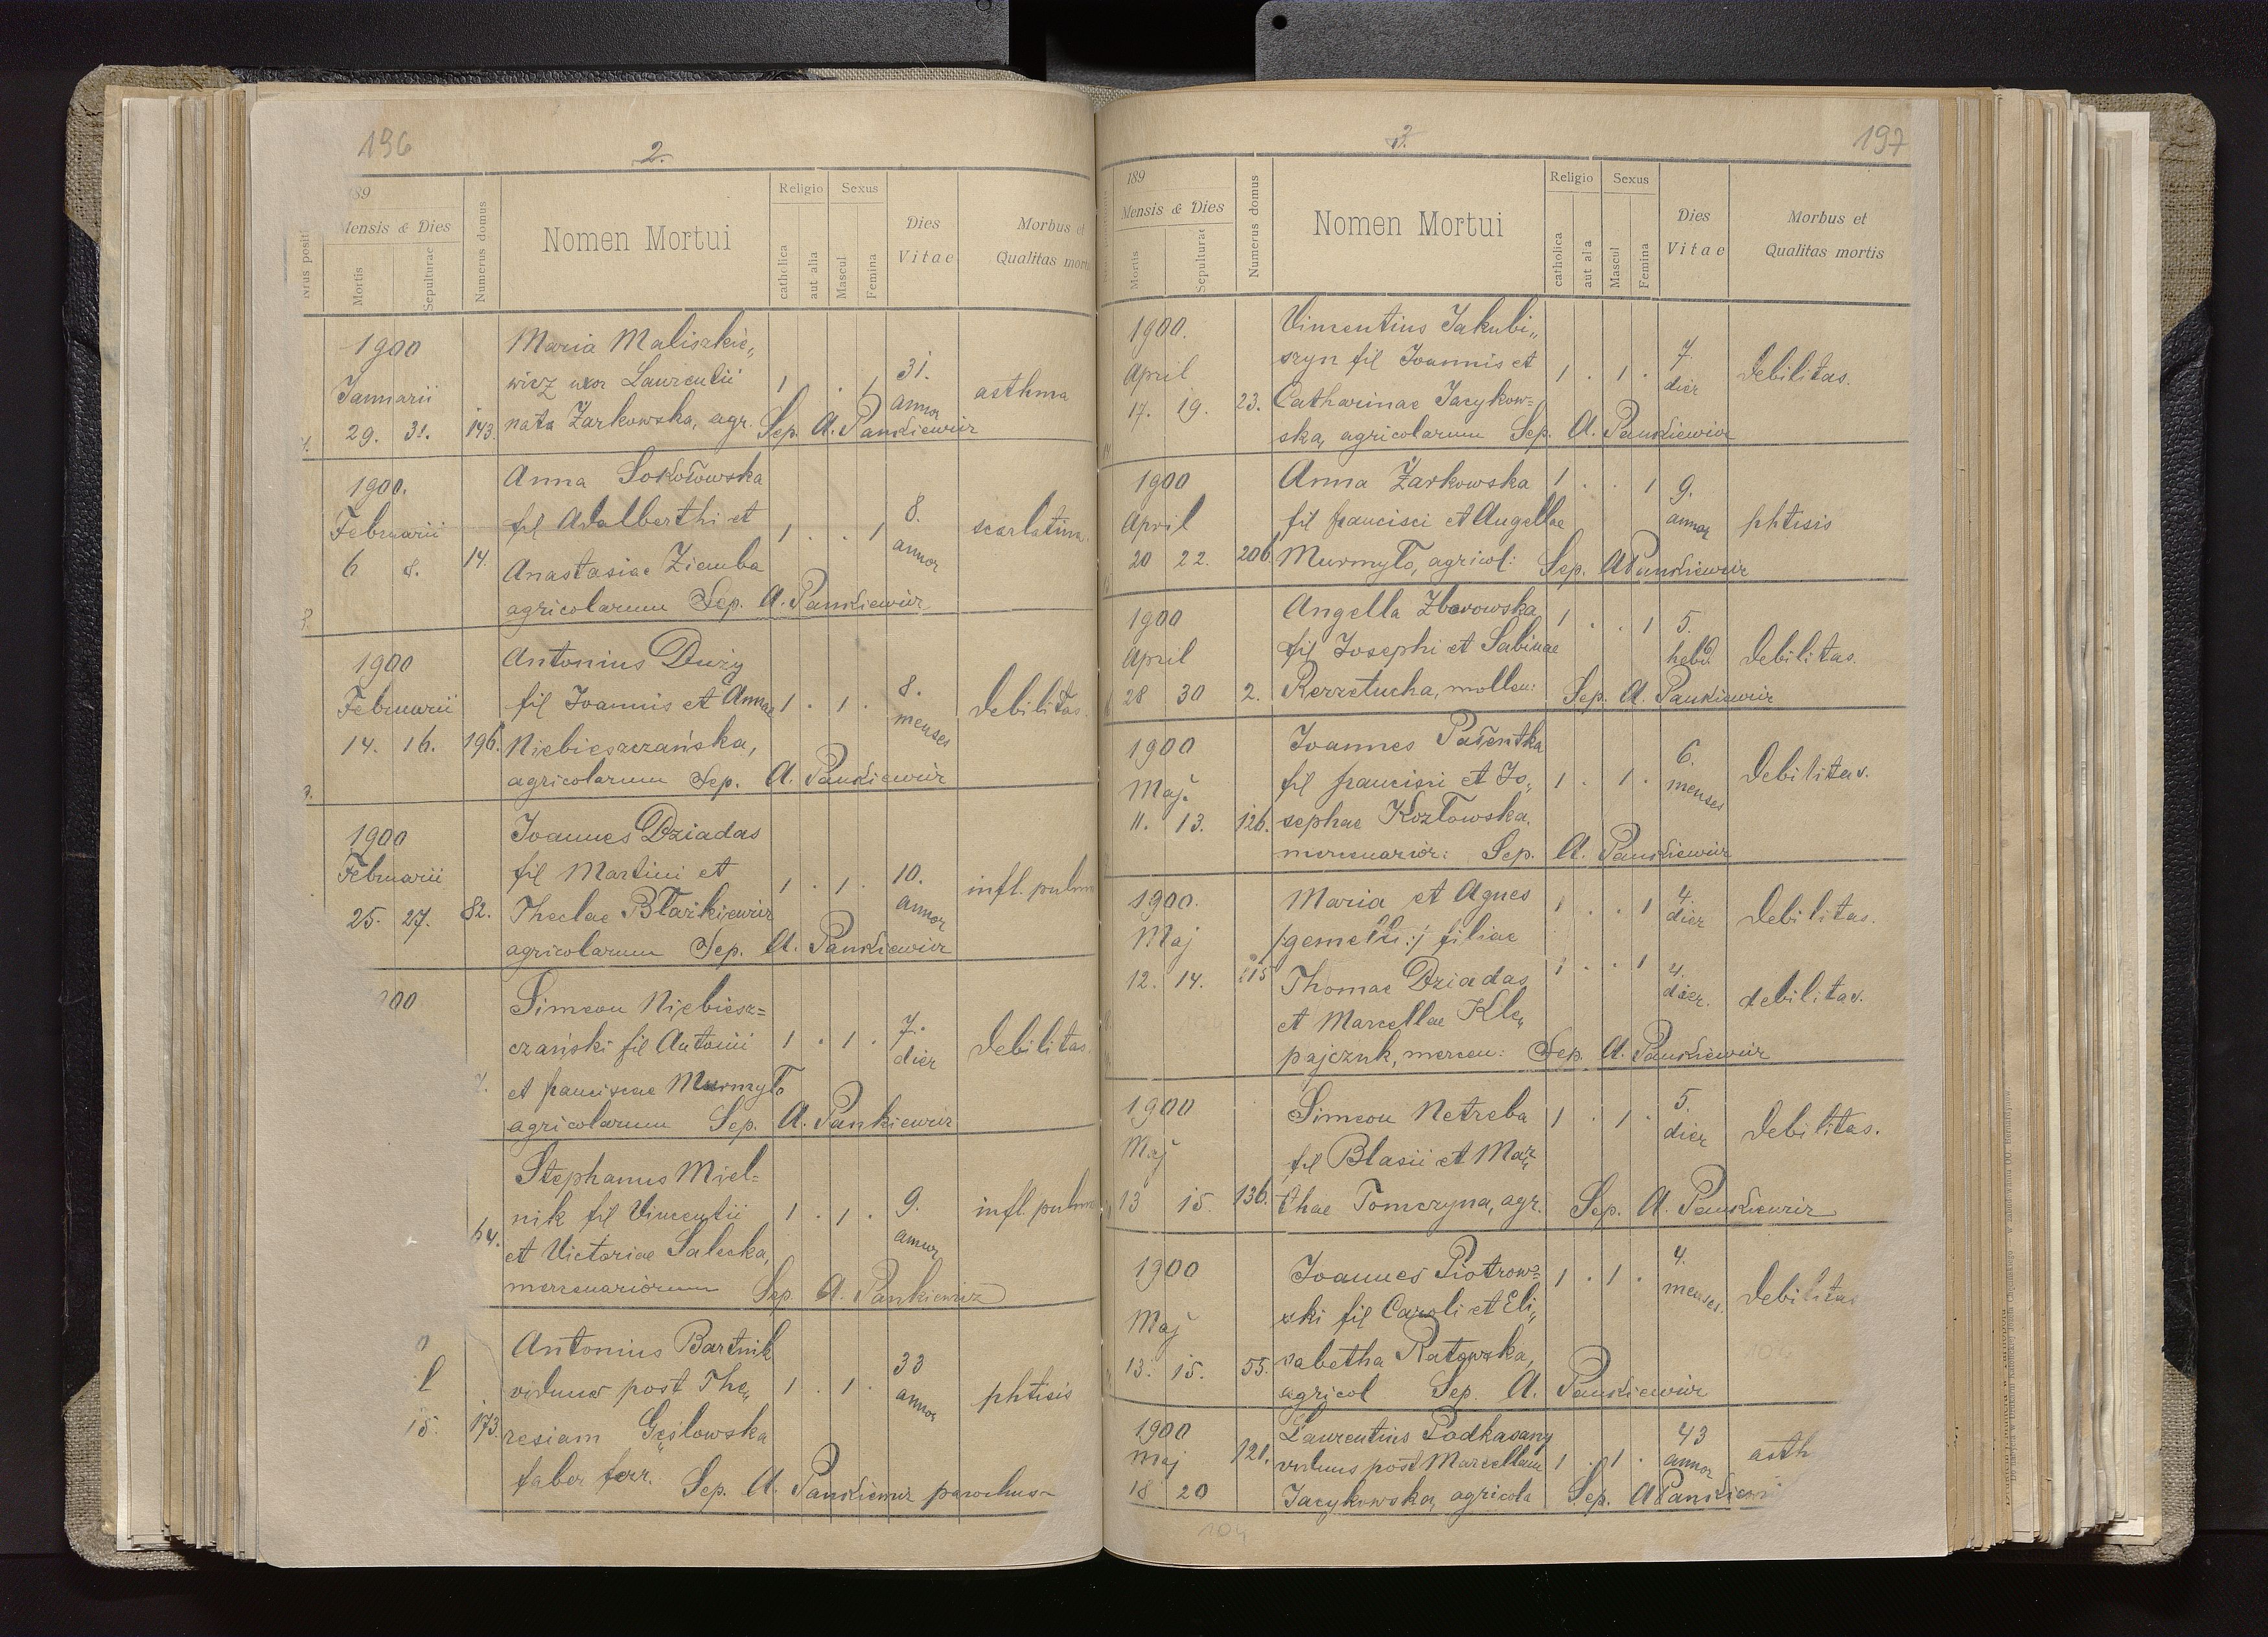 196
2.
189
Mensis & Dies
Mortis
Sepulturae
Numerus domus
Nomen Mortui
Religio
catholica
aut alia
Sexus
Mascul
Femina
Dies
Vitae
Morbus et
Qualitas mortis
1900
Januarii
29. 31. 143.
Maria Maliszkie„
wicz uxor Laurentii
nata Żarkowska, agr. Sep. A. Pankiewicz
1 . . 1
31.
annor
asthma
1900.
Februarii
6 8. 14.
Anna Sokołowska
fil Adalberthi et
Anastasiae Ziemba
agricolarum Sep. A. Pankiewicz
1 . . 1
8.
annor
scarlatina
1900
Februarii
14. 16. 196.
Antonius Duży
fil Joannis et Annae
Niebieszczańska,
agricolarum Sep. A. Pankiewicz
1 . 1 .
8.
menses
debilitas.
1900
Februarii
25. 27. 82.
Joannes Dziadas
fil Martini et
Theclae Błażkiewicz
agricolarum Sep. A. Pankiewicz
1 . 1 .
10.
annor
infl. pulm
00
Simeon Niebiesz=
czański fil Antonii
et franciscae Murmyło
agricolarum Sep. A. Pankiewicz
1 . 1 .
7.
dier
debilitas.
64.
Stephanus Miel=
nik fil Vincentii
et Victoriae Saleska,
mercenariorum Sep. A. Pankiewicz
1 . 1 .
9.
annor
infl. pulm
l
15. 173.
Antonius Bartnik
viduus post The„
resiam Gęślowska
faber ferr. Sep. A. Pankiewicz parochus
1 . 1 .
33
annor
phtisis
197
3.
189
Mensis & Dies
Mortis
Sepulturae
Numerus domus
Nomen Mortui
Religio
catholica
aut alia
Sexus
Mascul
Femina
Dies
Vitae
Morbus et
Qualitas mortis
1900.
April
17. 19. 23.
Vincentius Jakubi„
szyn fil Joannis et
Catharinae Jacykow=
ska, agricolarum Sep. A. Pankiewicz
1 . 1 .
7.
dier
debilitas.
1900
April
20 22. 206
Anna Żarkowska
fil francisci et Angellae
Murmyło, agricol: Sep. A Pankiewicz
1 . . 1
9.
annor
phtisis
1900
April
28 30 2.
Angella Zborowska
fil Josephi et Sabinae
Rzezetucha, mollen: Sep. A. Pankiewicz
1 . . 1
5.
hebd.
debilitas.
1900
Maj.
11. 13. 126.
Joannes Pałentka
fil francisci et Jo„
sephae Kozłowska.
mercenarior: Sep. A. Pankiewicz
1 . 1 .
6.
menses
debilitas.
1900.
Maj
12. 14. 215
Maria et Agnes
/gemelli:/ filiae
Thomae Dziadas
et Marcellae Kle„
pajczuk, mercen: Sep. A. Pankiewicz
1 . . 1
4.
dier
debilitas.
1 . . 1
4.
dier.
debilitas.
1900
Maj
13 15. 136.
Simeon Netreba
fil Blasii et Mar„
thae Tomczyna, agr. Sep. A. Pankiewicz
1 . 1 .
5.
dier
debilitas.
1900
Maj
13. 15. 55.
Joannes Piotrow=
ski fil Caroli et Eli„
sabetha Ratowska,
agricol Sep. A. Pankiewicz
1 . 1 .
4.
menses.
debilitas
1900
maj
18 20 121.
Laurentius Podkasany
viduus post Marcellam
Jacykowska, agricola Sep. A Pankiewi
1 . 1 .
43
annor
asth
104